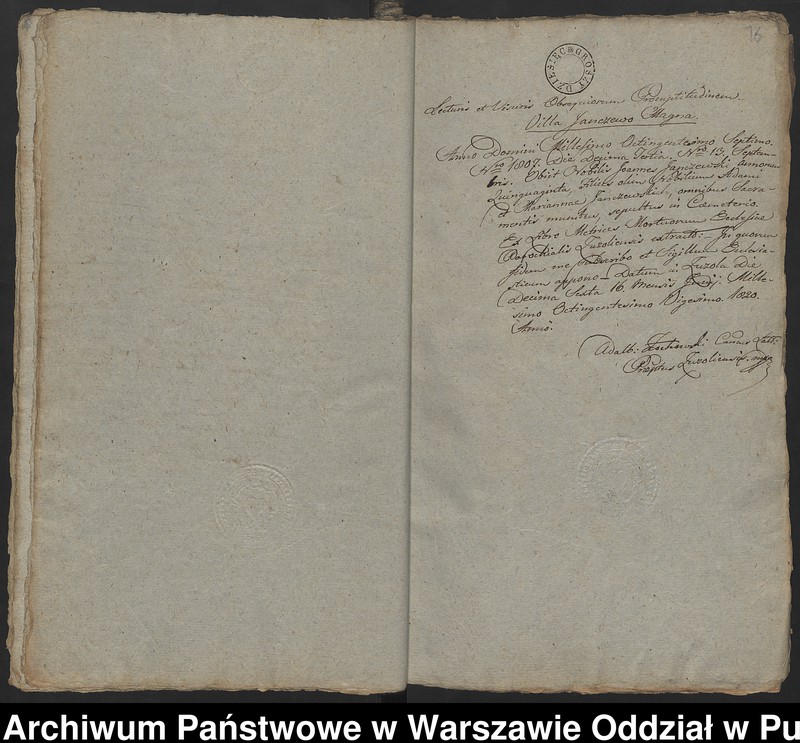 16
DZIESIĘC GROSZY
Lecturis et Visuris Obsequiorum Promptitudinem
Villa Janczewo Magna.
Anno Domini Millesimo Octingentesimo Septimo.
Nro 1807. Die Decima Tertia, Nro 13. Septem-
bris. Obiit Nobilis Joannes Janczewski annorum
Quinquaginta, Filius olim Nobilium Adami
et Mariannae Janczewskich, omnibus Sacra-
mentis munitus, sepultus in Caemeterio.
Ex Libro Metrices Mortuorum Ecclesiae
Parochialis Zuzoliensis extractt:- In quorum
fidem me subscribo et Sigillum Ecclesia-
sticum appono - Datum in Zuzola Die
Decima Sexta 16. mensis Mille-
simo Octingentesimo Vigesimo 1820.
Anno.
Adalb:
Zuzoliensis. mpp
Archiwum Państwowe w Warszawie Oddział w Pu